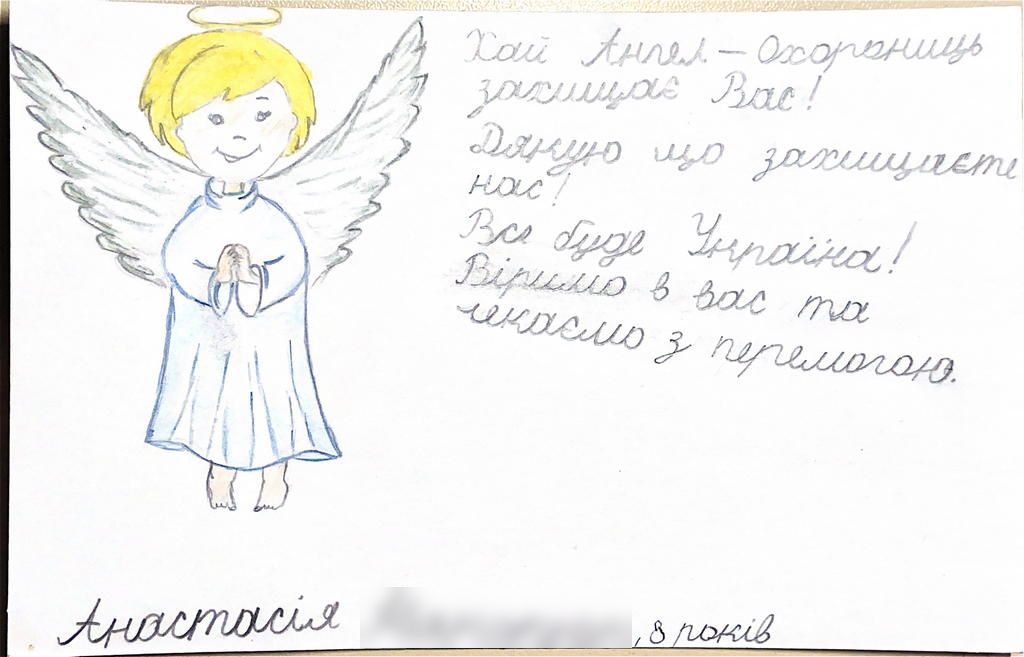 Хай Ангел-Охоронець
захищає Вас!
Дякую що захищаєте
нас!
Все буде Україна!
Віримо в вас та
чекаємо з перемогою.
Анастасія , 8 років